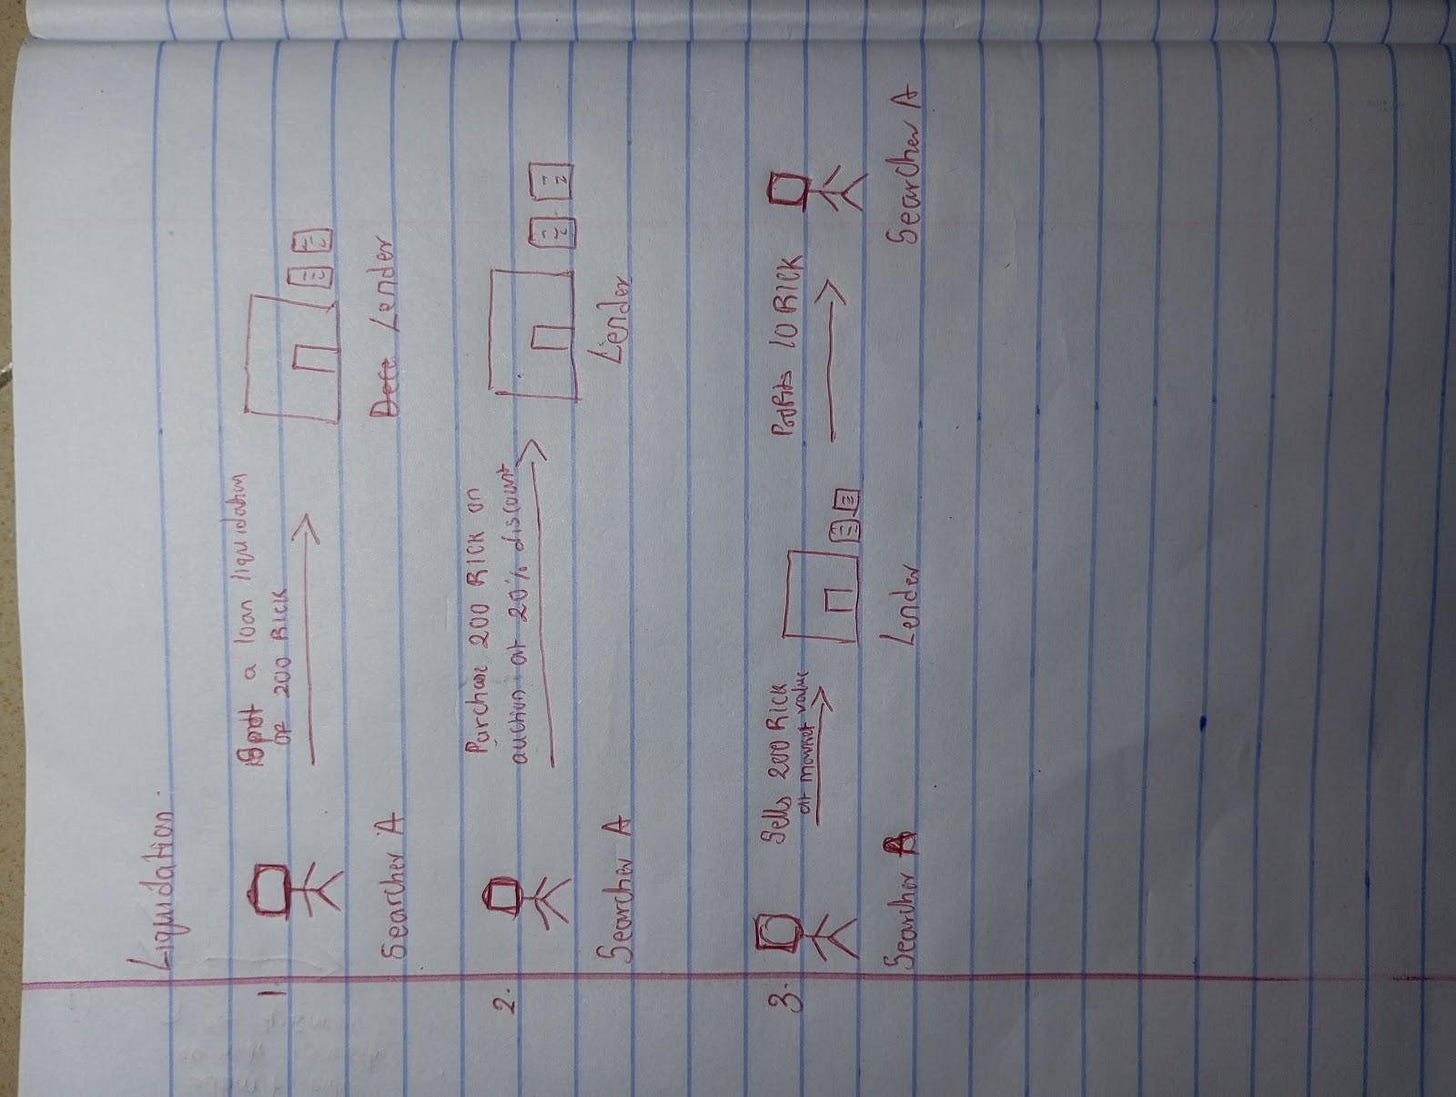 Liquidation
1.
Spot a loan liquidation
of 200 RICK
Searcher A
Lender
2.
Purchase 200 RICK on
auction at 20% discount
Searcher A
Lender
3.
Sells 200 RICK
at market value
Profits 10 RICK
Searcher A
Lender
Searcher A